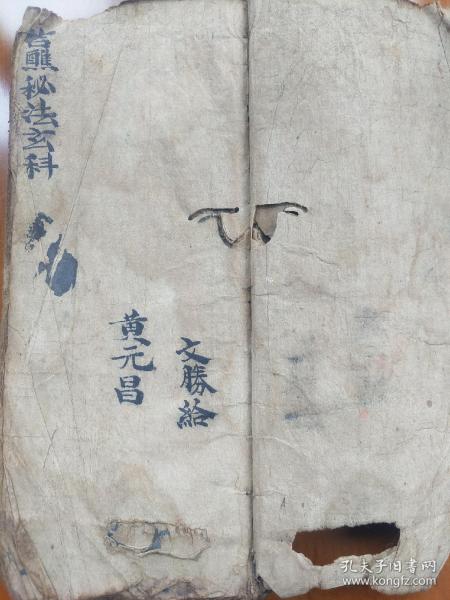 醮秘法玄科
文勝給
黄元昌
孔夫子旧书网
www.kongfz.com